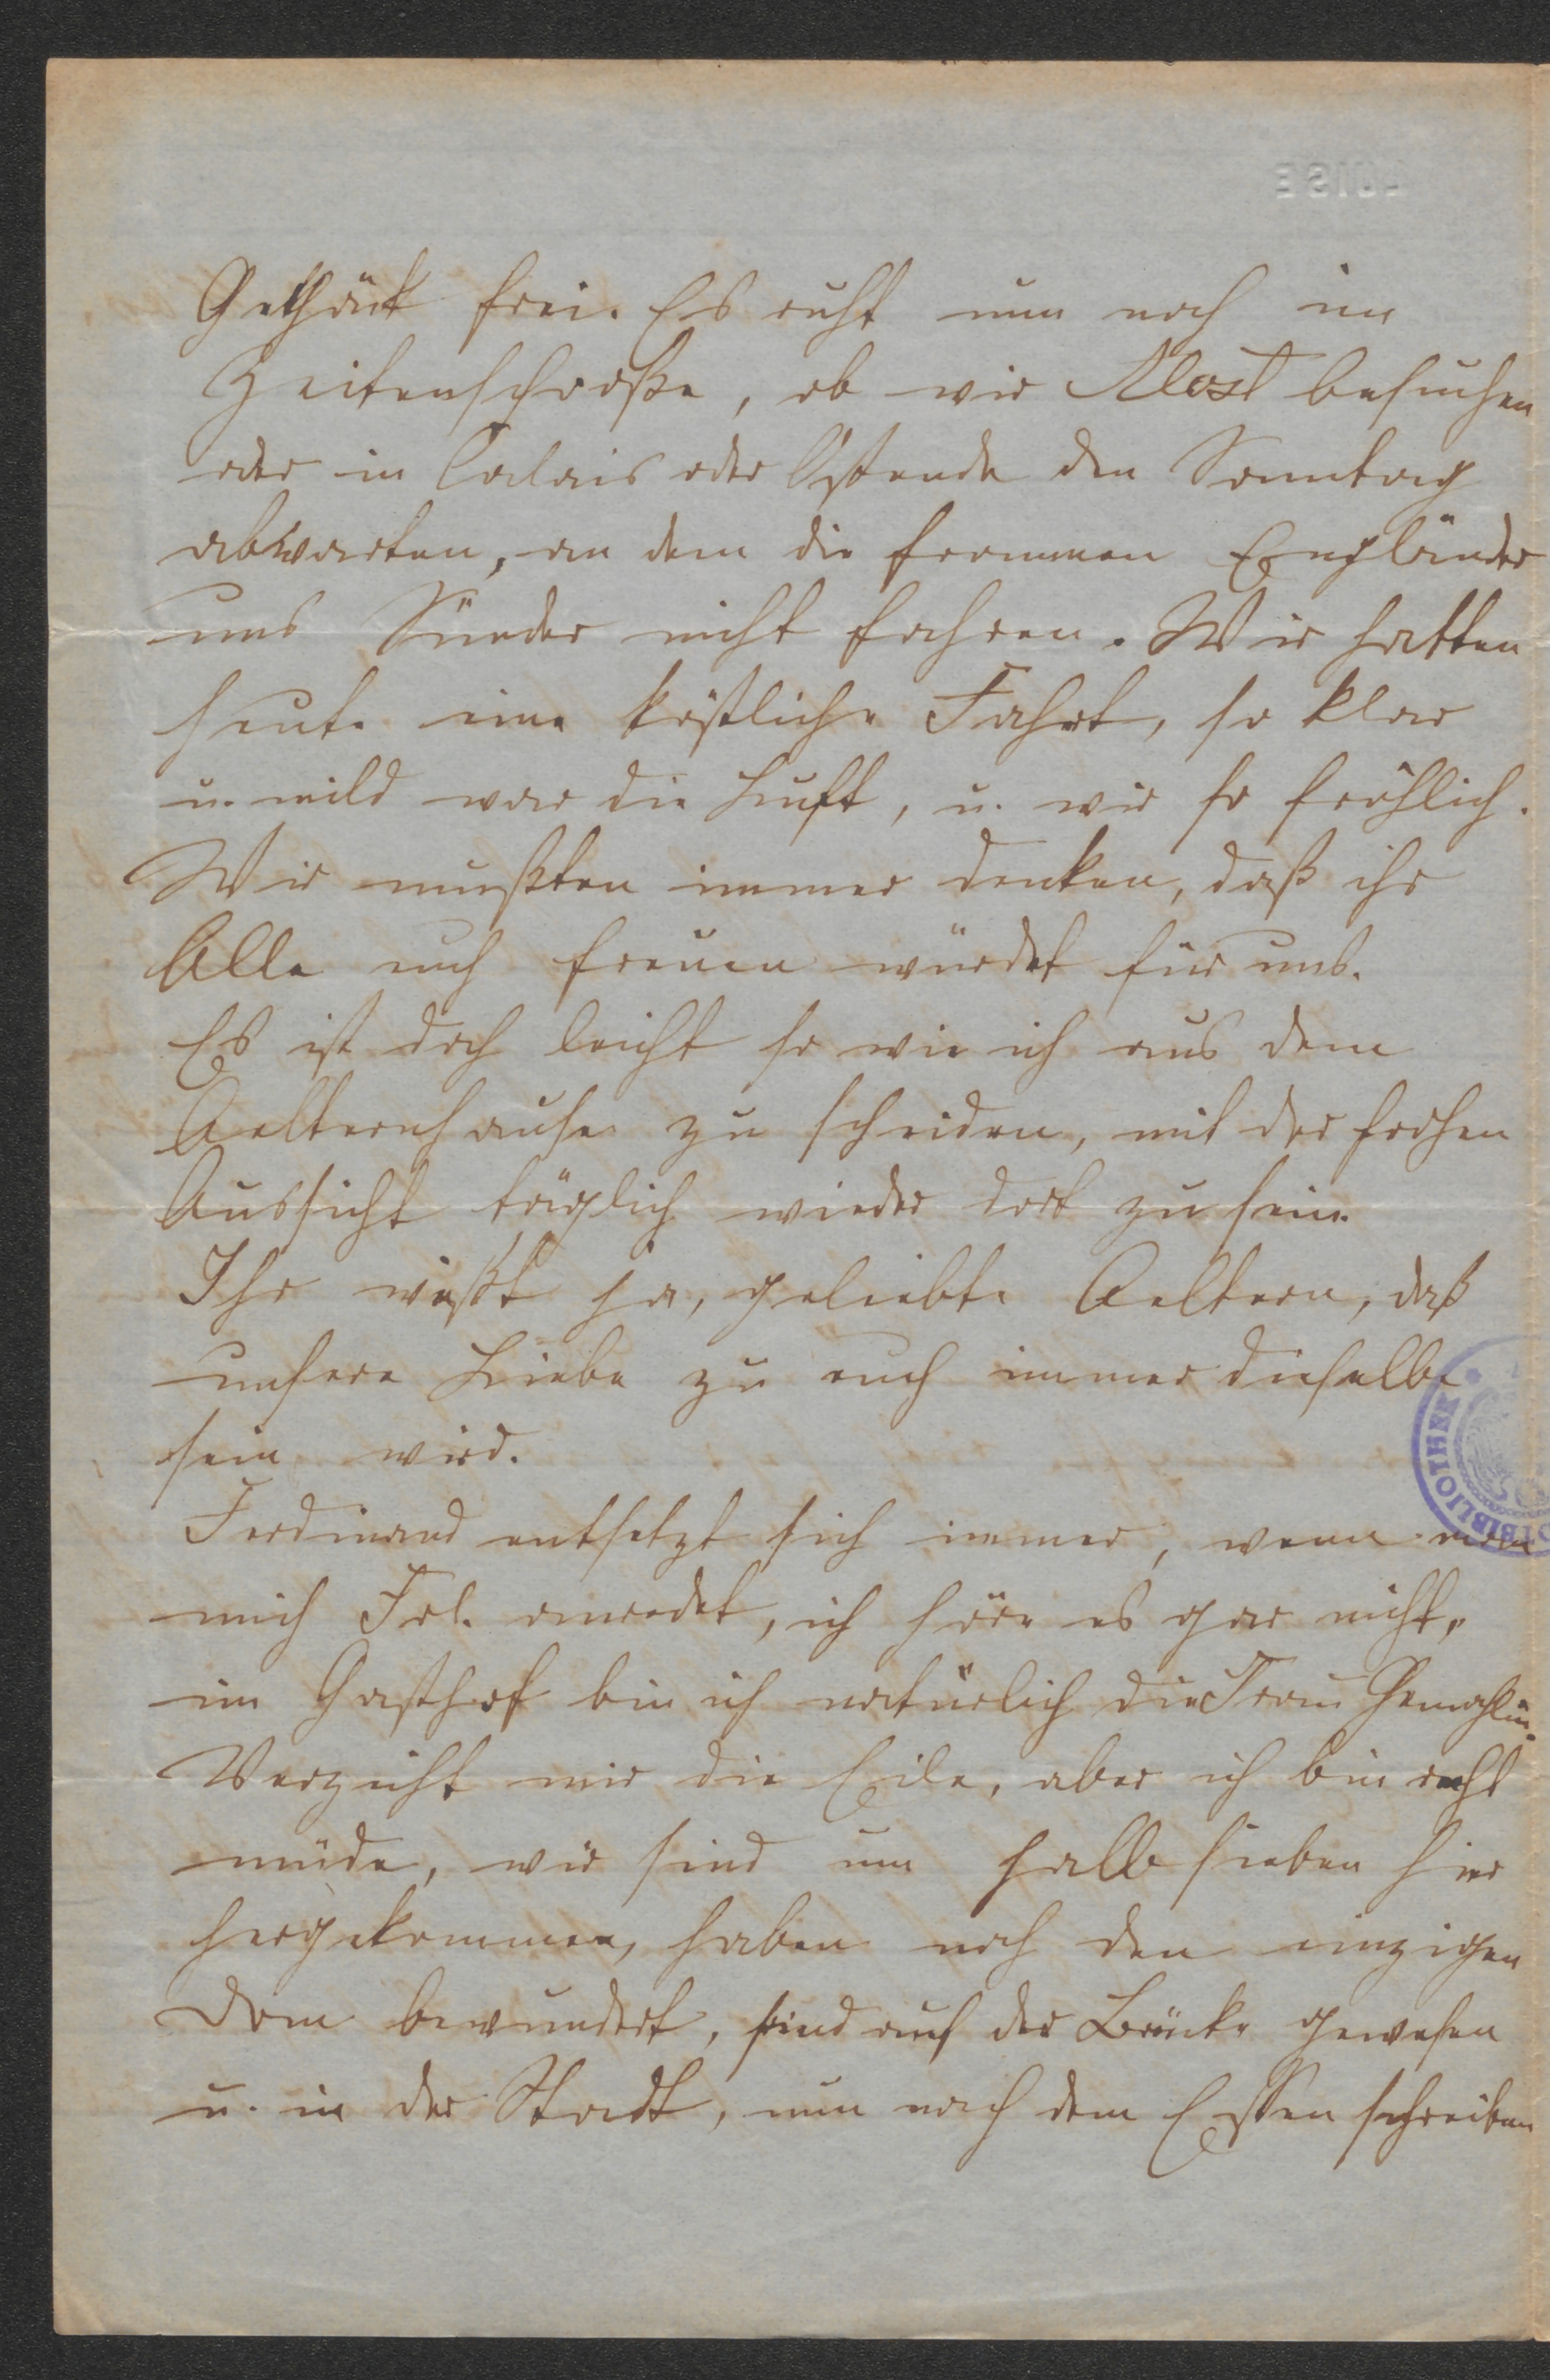 ƎSIUO⅃
Gethäck frei. Es ruht nun noch im
Zeitenschooße, ob wir Alost besuchen
oder in Calais oder Ostende den Sonntag
abwarten, an dem die frommen Engländer
uns Sünder nicht fahren. Wir hatten
heute eine köstliche Fahrt, so klar
u. mild war die Luft, u. wir so fröhlich.
Wir mußten immer denken, daß ihr
Alle euch freuen würdet für uns.
Es ist doch leicht so wie ich aus dem
Aelternhause zu scheiden, mit der frohen
Aussicht täglich wieder dort zu sein.
Ihr wißt ja, geliebte Aeltern, daß
unsere Liebe zu euch immer dieselbe
sein wird.
Ferdinand entsetzt sich immer, wenn man
mich Frl. anredet, ich höre es gar nicht,
im Gasthof bin ich natürlich die Frau Gemahlin.
Verzeiht mir die Eile, aber ich bin recht
müde, wir sind um halb sieben hier
hergekommen, haben noch den einzigen
Dom bewundert, sind auf der Brücke gewesen
u. in der Stadt, nun nach dem Essen schreiben
BIBLIOTHEK